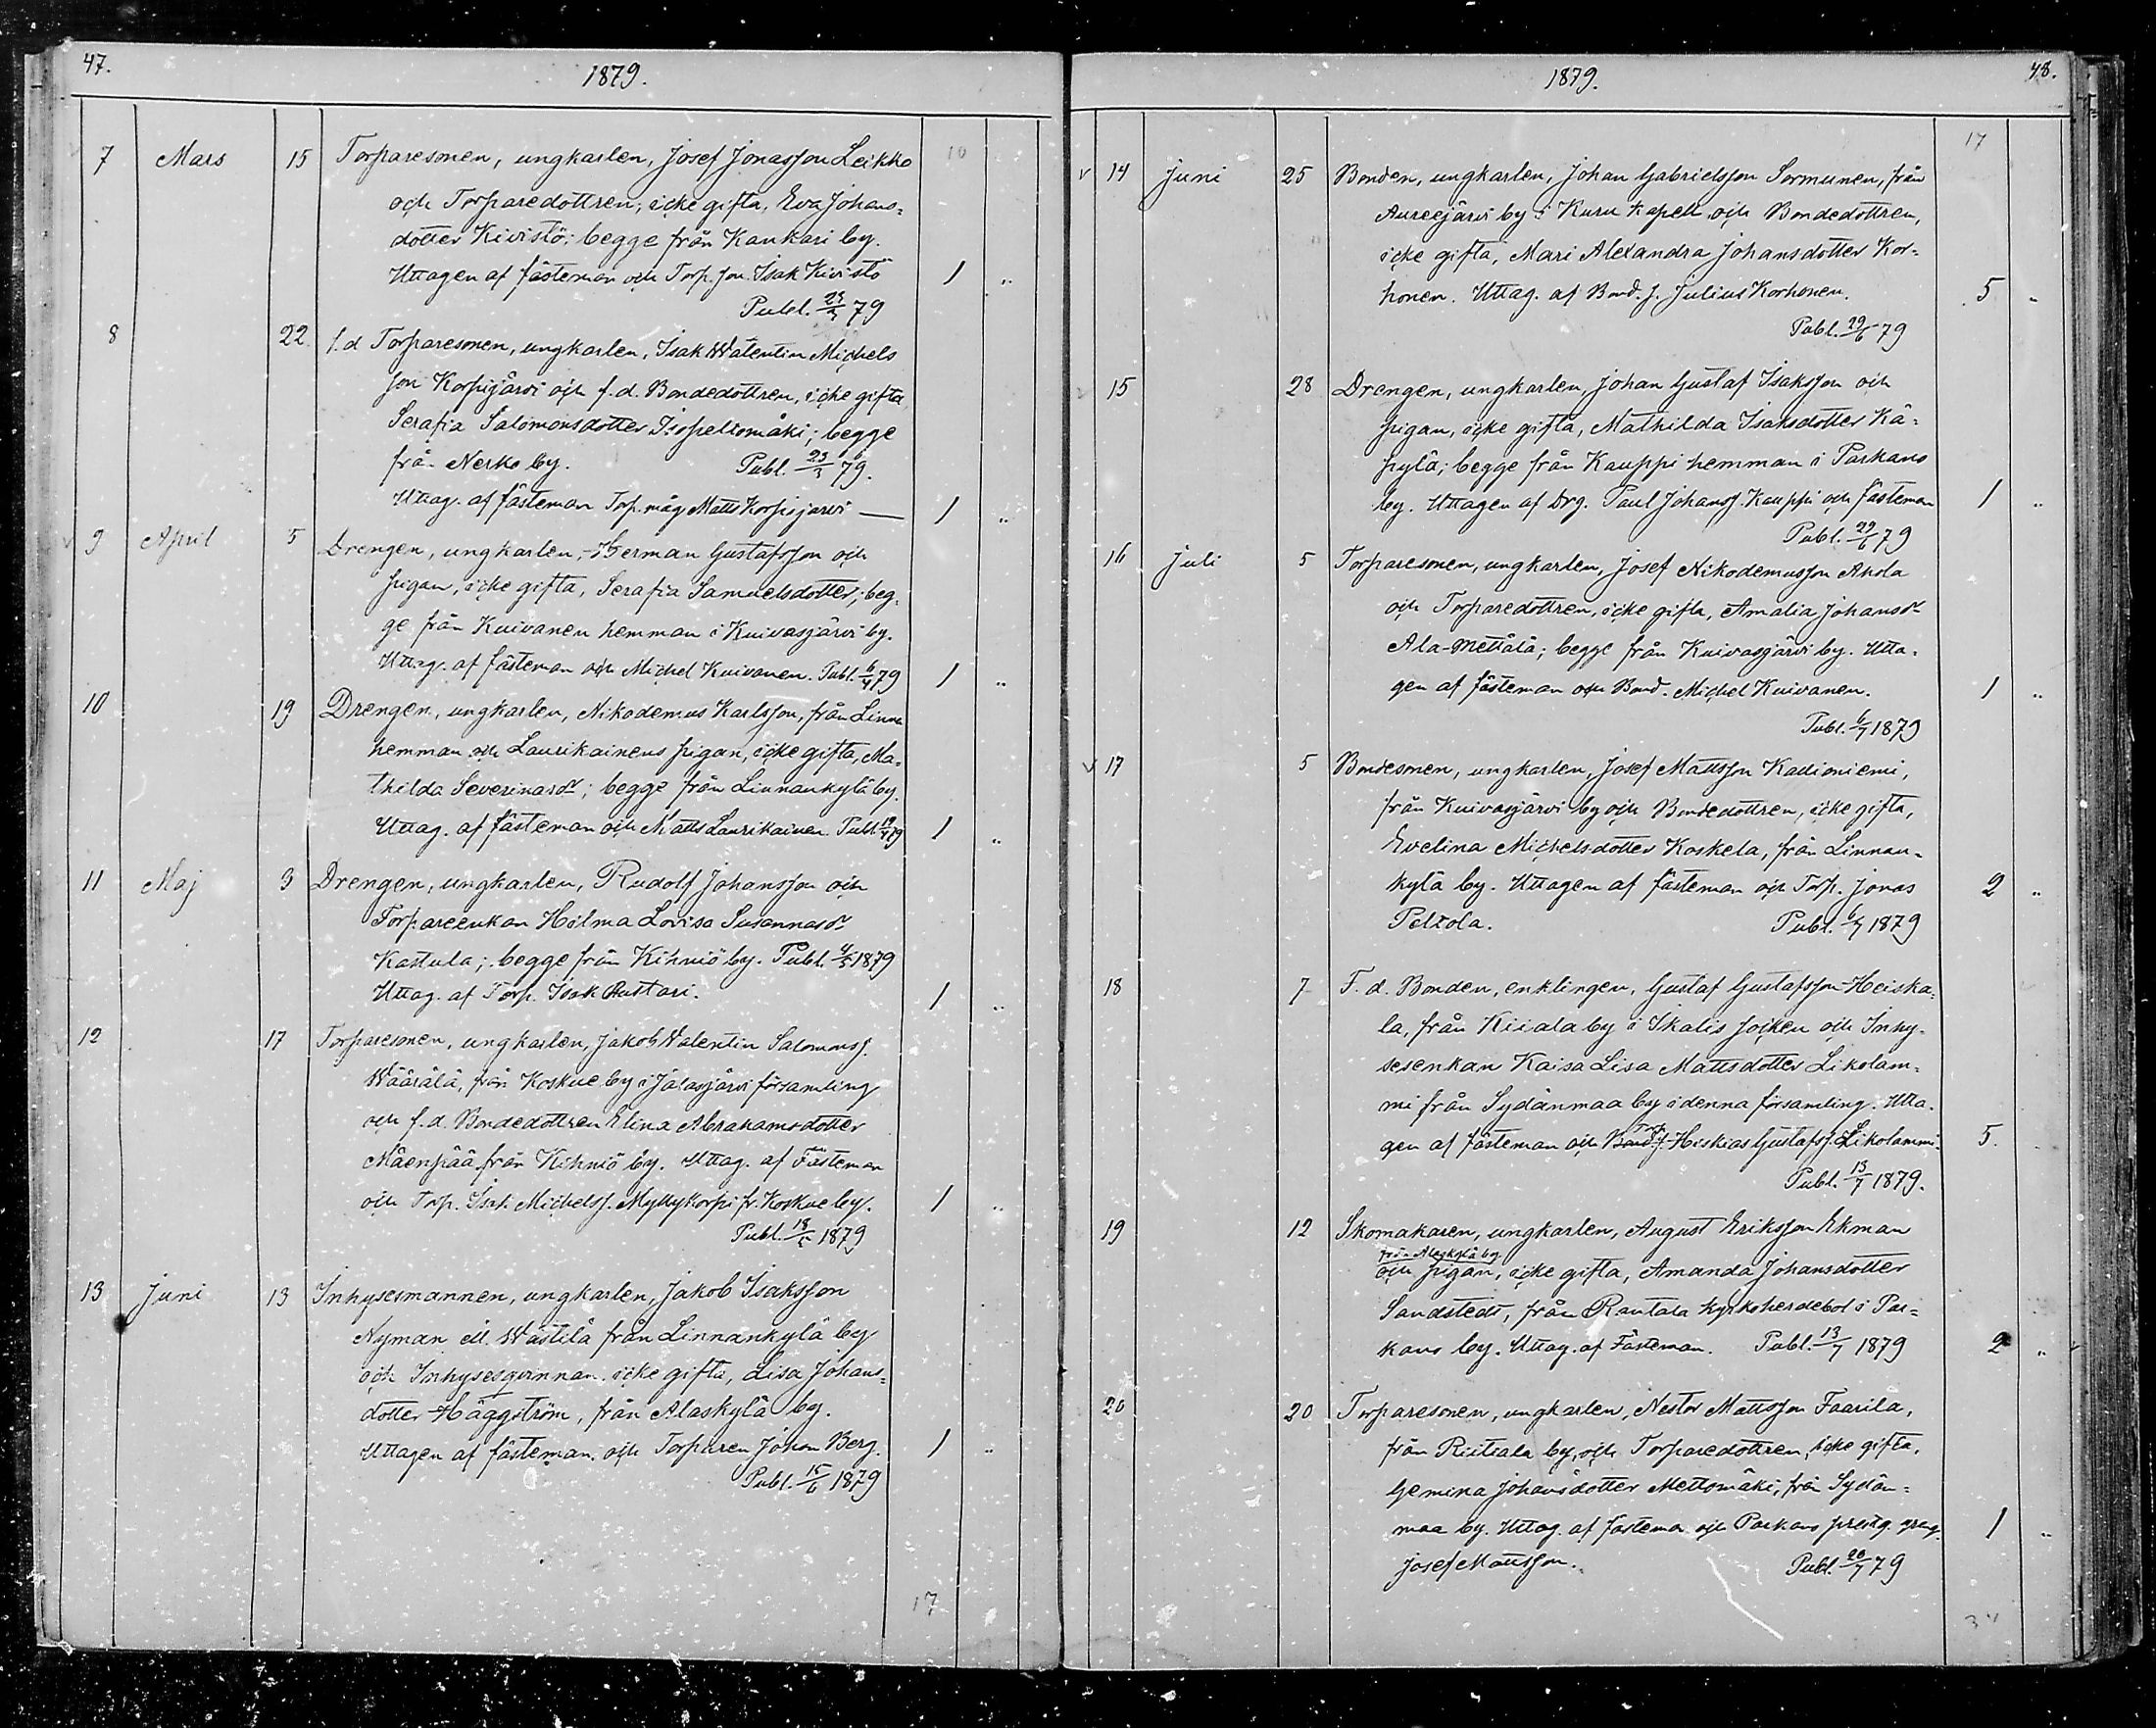 47.
1879.
10
7 Mars 15 Torparesonen, ungkarlen, Josef Jonasson Leikko
och Torparedottren, icke gifta, Eva Johans-
dotter Kivistö; begge från Kankari by.
Uttagen af fästeman och Torp. son Isak Kivistö 1 "
Publ. 23/3 79
8 22 f.d Torparesonen, ungkarlen, Isak Walentin Michels
son Korpijärvi och f.d. Bondedottren, icke gifta
Serafia Salomonsdotter Isopeltomäki; begge
från Nerko by. Publ. 23/3 79.
Uttag. af fästeman Torp. måg Matts Korpijärvi — 1 "
9 April 5 Drengen, ungkarlen, Herman Gustafsson och
pigan, icke gifta, Serafia Samuelsdotter; beg-
ge från Kuivanen hemman i Kuivasjärvi by.
Uttag. af fästeman och Michel Kuivanen. Publ. 6/4 79 1 "
10 19 Drengen, ungkarlen, Nikodemus Karlsson, från Linna
hemman och Laurikainens pigan, icke gifta, Ma-
thilda Severinasdr; begge från Linnankylä by.
Uttag. af fästeman och Matts Laurikainen Publ. 19/4 79 1 "
11 Maj 3 Drengen, ungkarlen, Rudolf Johansson och
Torpareenkan Hilma Lovisa Susannasdr
Kastula; begge från Kihniö by. Publ. 4/5 1879
Uttag. af Torp. Isak Rustari. 1 "
12 17 Torparesonen, ungkarlen, Jakob Walentin Salomonss.
Wäärälä, från Koskue by i Jalasjärvi församling
och f.d. Bondedottren Elina Abrahamsdotter
Mäenpää från Kihniö by. Uttag. af Fästeman
och Torp. Isak Michelss. Myllykorpi fr. Koskue by. 1 "
Publ. 18/5 1879
13 Juni 13 Inhysesmannen, ungkarlen, Jakob Isaksson
Nyman ell. Wästilä från Linnankylä by
och Inhysesqvinnan icke gifta, Lisa Johans-
dotter Häggström, från Alaskylä by.
Uttagen af fästeman och Torparen Johan Berg. 1 "
Publ. 15/6 1879
17
1879.
48.
17
v 14 Juni 25 Bonden, ungkarlen, Johan Gabrielsson Sormunen, från
Aureejärvi by i Kuru Kapell och Bondedottren,
icke gifta, Mari Alexandra Johansdotter Kor-
honen. Uttag. af Bond. s. Julius Korhonen. 5 "
Publ. 29/6 79
15 28 Drengen, ungkarlen, Johan Gustaf Isaksson och
pigan, icke gifta, Mathilda Isaksdotter Kä-
pylä; begge från Kauppi hemman i Parkano
by. Uttagen af Drg. Paul Johanss. Kauppi och fästeman 1 "
Publ. 29/6 79
16 Juli 5 Torparesonen, ungkarlen, Josef Nikodemusson Ahola
och Torparedottren, icke gifta, Amalia Johansdr
Ala-Mettälä; begge från Kuivasjärvi by. Utta-
gen af fästeman och Bond. Michel Kuivanen. 1 "
Publ. 6/7 1879
v 17 5 Bondesonen, ungkarlen, Josef Mattsson Kallioniemi,
från Kuivasjärvi by och Bondedottren, icke gifta,
Evelina Michelsdotter Koskela, från Linnan-
kylä by. Uttagen af fästeman och Torp. Jonas 2 "
Peltola. Publ. 6/7 1879
18 7 F. d. Bonden, enklingen, Gustaf Gustafsson Heiska-
la, från Kiiala by i Ikalis socken och Inhy-
sesenkan Kaisa Lisa Mattsdotter Likolam-
mi från Sydänmaa by i denna församling. Utta-
gen af fästeman och Torp. s. Heskias Gustafss. Likolammi. 5.
Publ. 13/7 1879.
19 12 Skomakaren, ungkarlen, August Eriksson Ekman
från Alaskylä by
och pigan, icke gifta, Amanda Johansdotter
Sandstedt, från Rantala kyrkoherdebol i Par-
kano by. Uttag. af Fästeman. Publ. 13/7 1879 2 "
20 20 Torparesonen, ungkarlen, Nestor Mattsson Faarila,
från Riitiala by, och Torparedottren, icke gifta,
Gemina Johansdotter Mettomäki, från Sydän-
maa by. Uttag. af fästeman och Parkano prestg. 1 "
Josef Mattsson. Publ. 20/7 79
34